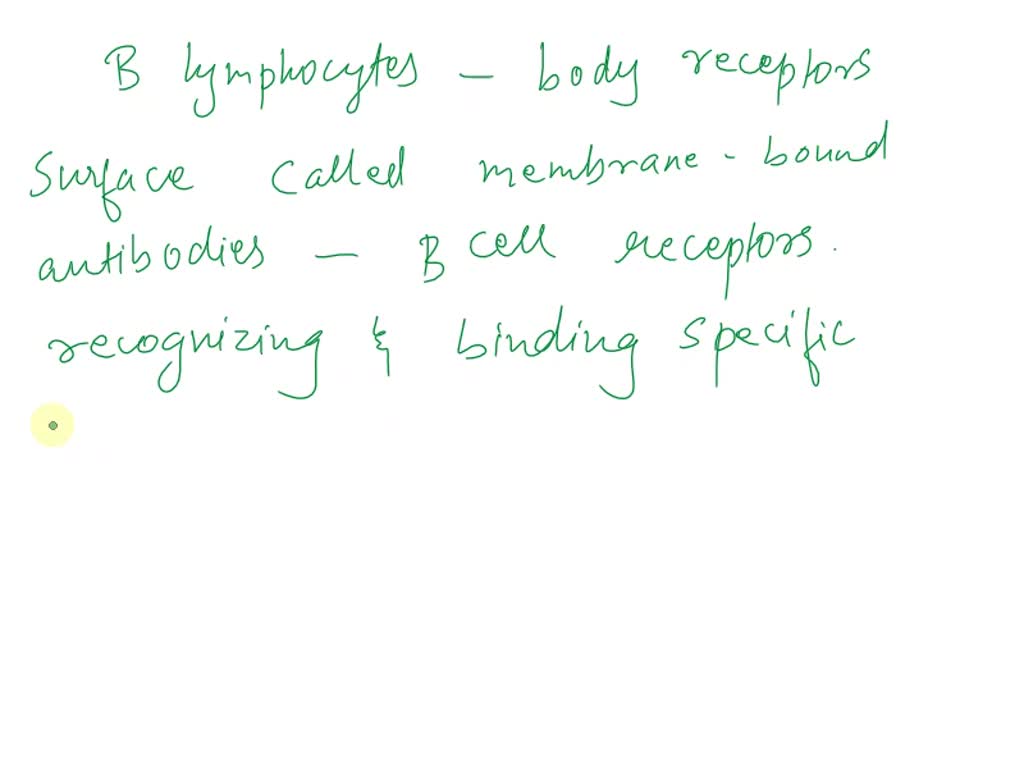 B lymphocytes - body receptors
Surface called membrane - bound
antibodies - B cell receptors.
recognizing & binding specific